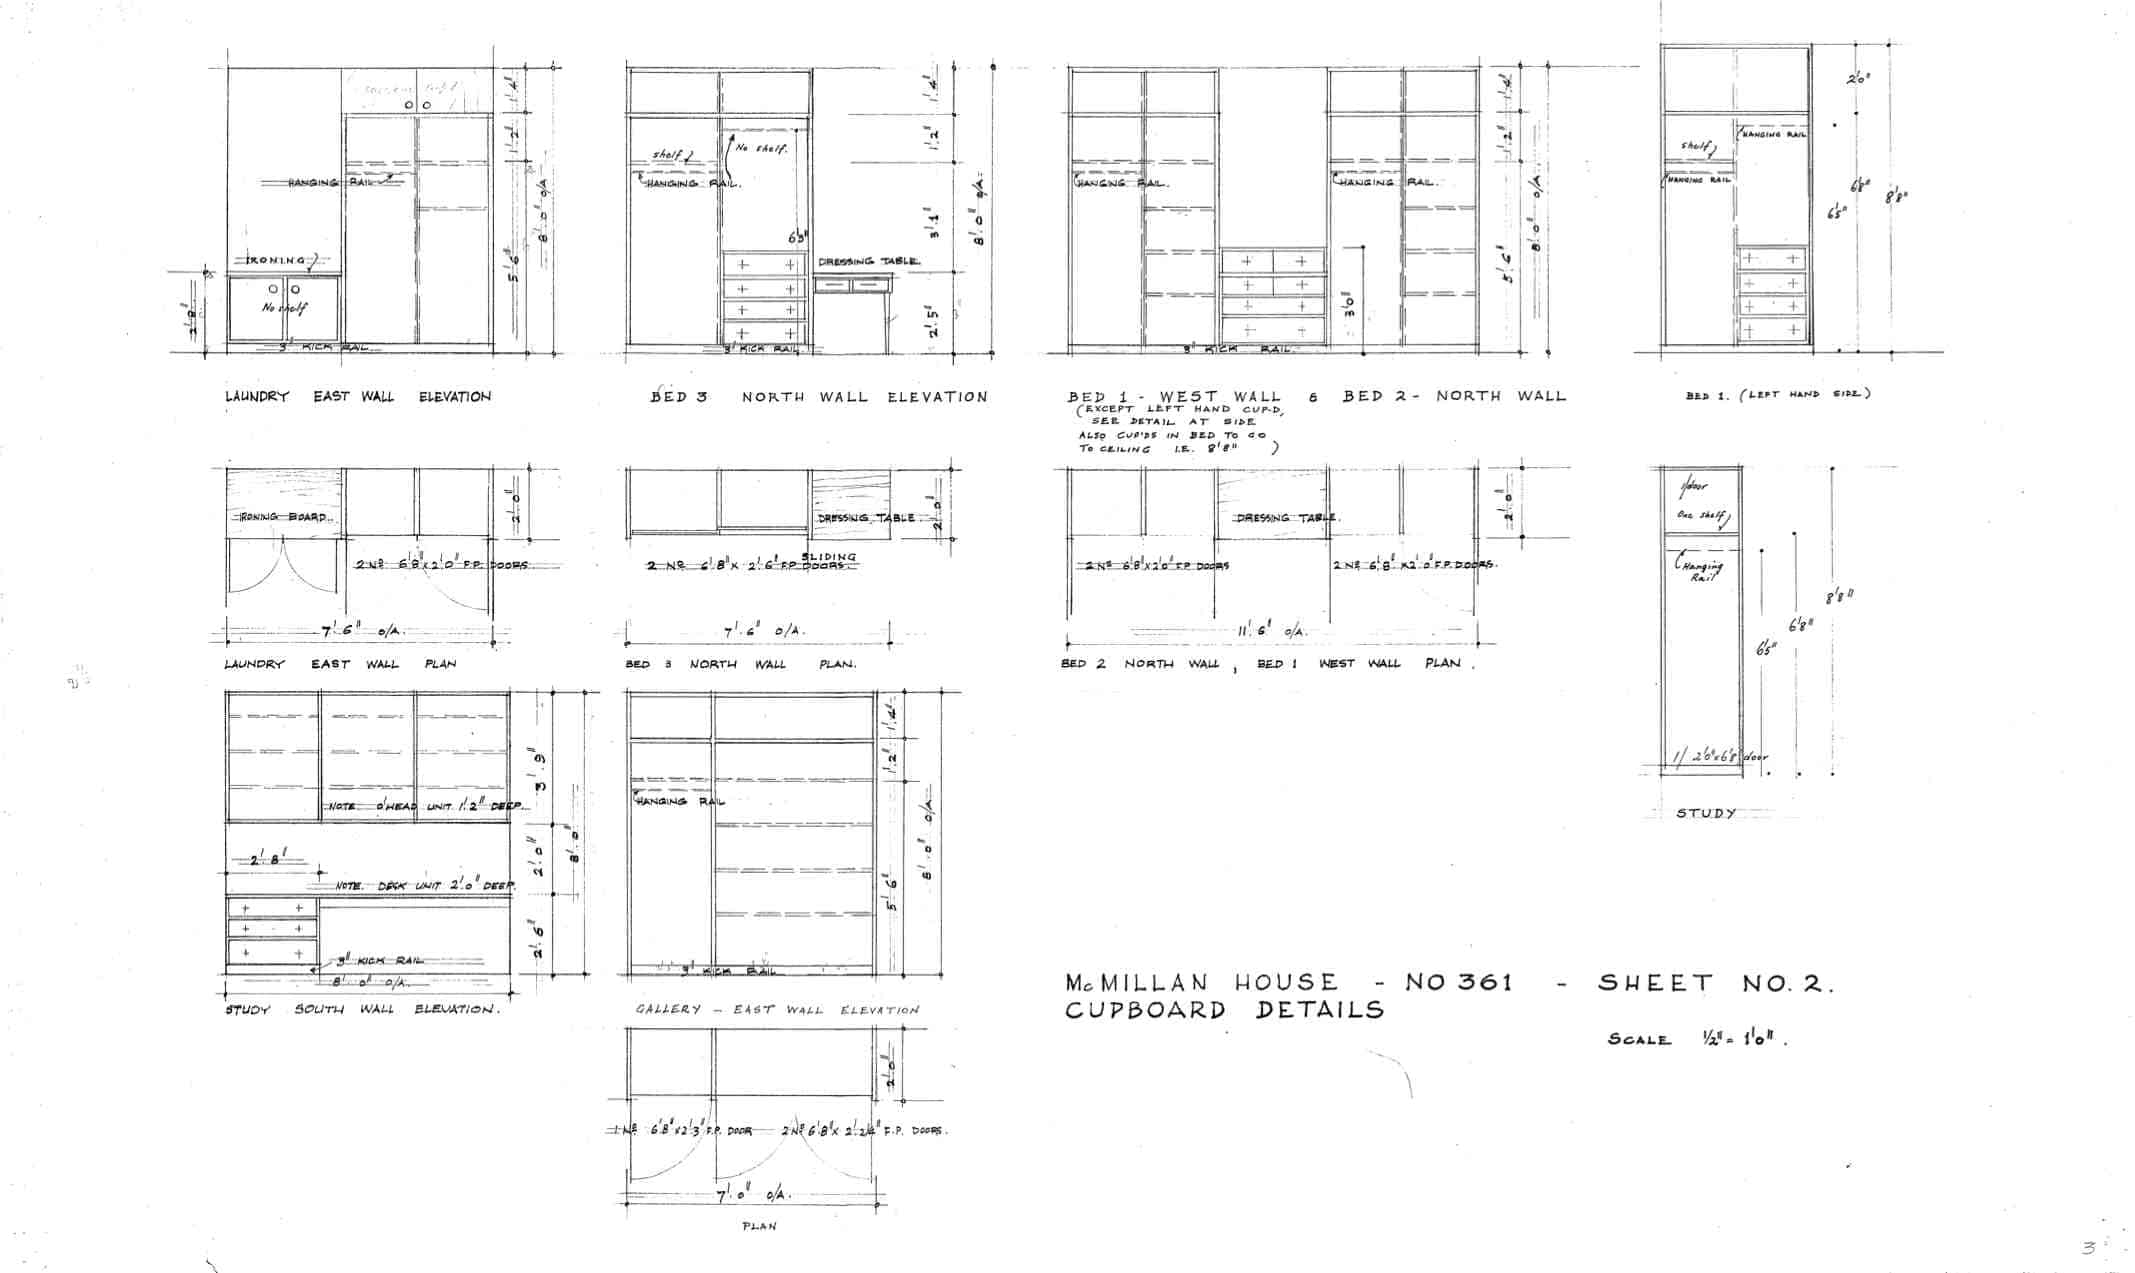 1'.4"
1'.2"
5'.6"
8'.0" O/A.
HANGING RAIL
IRONING
No shelf
2'.8"
3" KICK RAIL.
LAUNDRY EAST WALL ELEVATION
1'.4"
1'.2"
3'.1"
2'.5"
8'.0" O/A.
shelf
No shelf.
HANGING RAIL.
6'3"
DRESSING TABLE.
3" KICK RAIL.
BED 3 NORTH WALL ELEVATION
1'.4"
1'.2"
5'.6"
8'.0" O/A.
HANGING RAIL.
HANGING RAIL.
3'0"
3" KICK RAIL.
BED 1 - WEST WALL & BED 2 - NORTH WALL
(EXCEPT LEFT HAND CUP'D,
SEE DETAIL AT SIDE
ALSO CUP'DS IN BED TO GO
TO CEILING I.E. 8'8" )
2'0"
HANGING RAIL
shelf
HANGING RAIL
6'8"
6'5"
8'8"
BED 1. (LEFT HAND SIDE)
IRONING BOARD.
2'.0"
2 No. 6'.8" x 2'.0" F.P. DOORS.
7'.6" O/A.
LAUNDRY EAST WALL PLAN
DRESSING TABLE.
2'.0"
SLIDING
2 No. 6'.8" x 2'.6" F.P. DOORS.
7'.6" O/A.
BED 3 NORTH WALL PLAN.
DRESSING TABLE.
2'.0"
2 No. 6'8" x 2'0" F.P. DOORS
2 No. 6'.8" x 2'.0" F.P. DOORS.
11'.6" O/A.
BED 2 NORTH WALL, BED 1 WEST WALL PLAN.
1/door
One shelf
Hanging
Rail
8'8"
6'8"
6'5"
1/ 2'0"x6'8" door
STUDY
NOTE. O'HEAD UNIT 1'.2" DEEP.
3'.9"
2'.0"
2'.6"
8'.0"
2'.8"
NOTE. DESK UNIT 2'.0" DEEP.
3" KICK RAIL
8'.0" O/A.
STUDY SOUTH WALL ELEVATION.
1'.4"
1'.2"
5'.6"
8'.0" O/A
HANGING RAIL
3" KICK RAIL
GALLERY - EAST WALL ELEVATION
2'.0"
1 No. 6'8" x 2'3" F.P. DOOR
2 No. 6'8" x 2'.2¼" F.P. DOORS.
7'.0" O/A.
PLAN
McMILLAN HOUSE - NO 361 - SHEET NO. 2.
CUPBOARD DETAILS
SCALE ½" = 1'0".
3